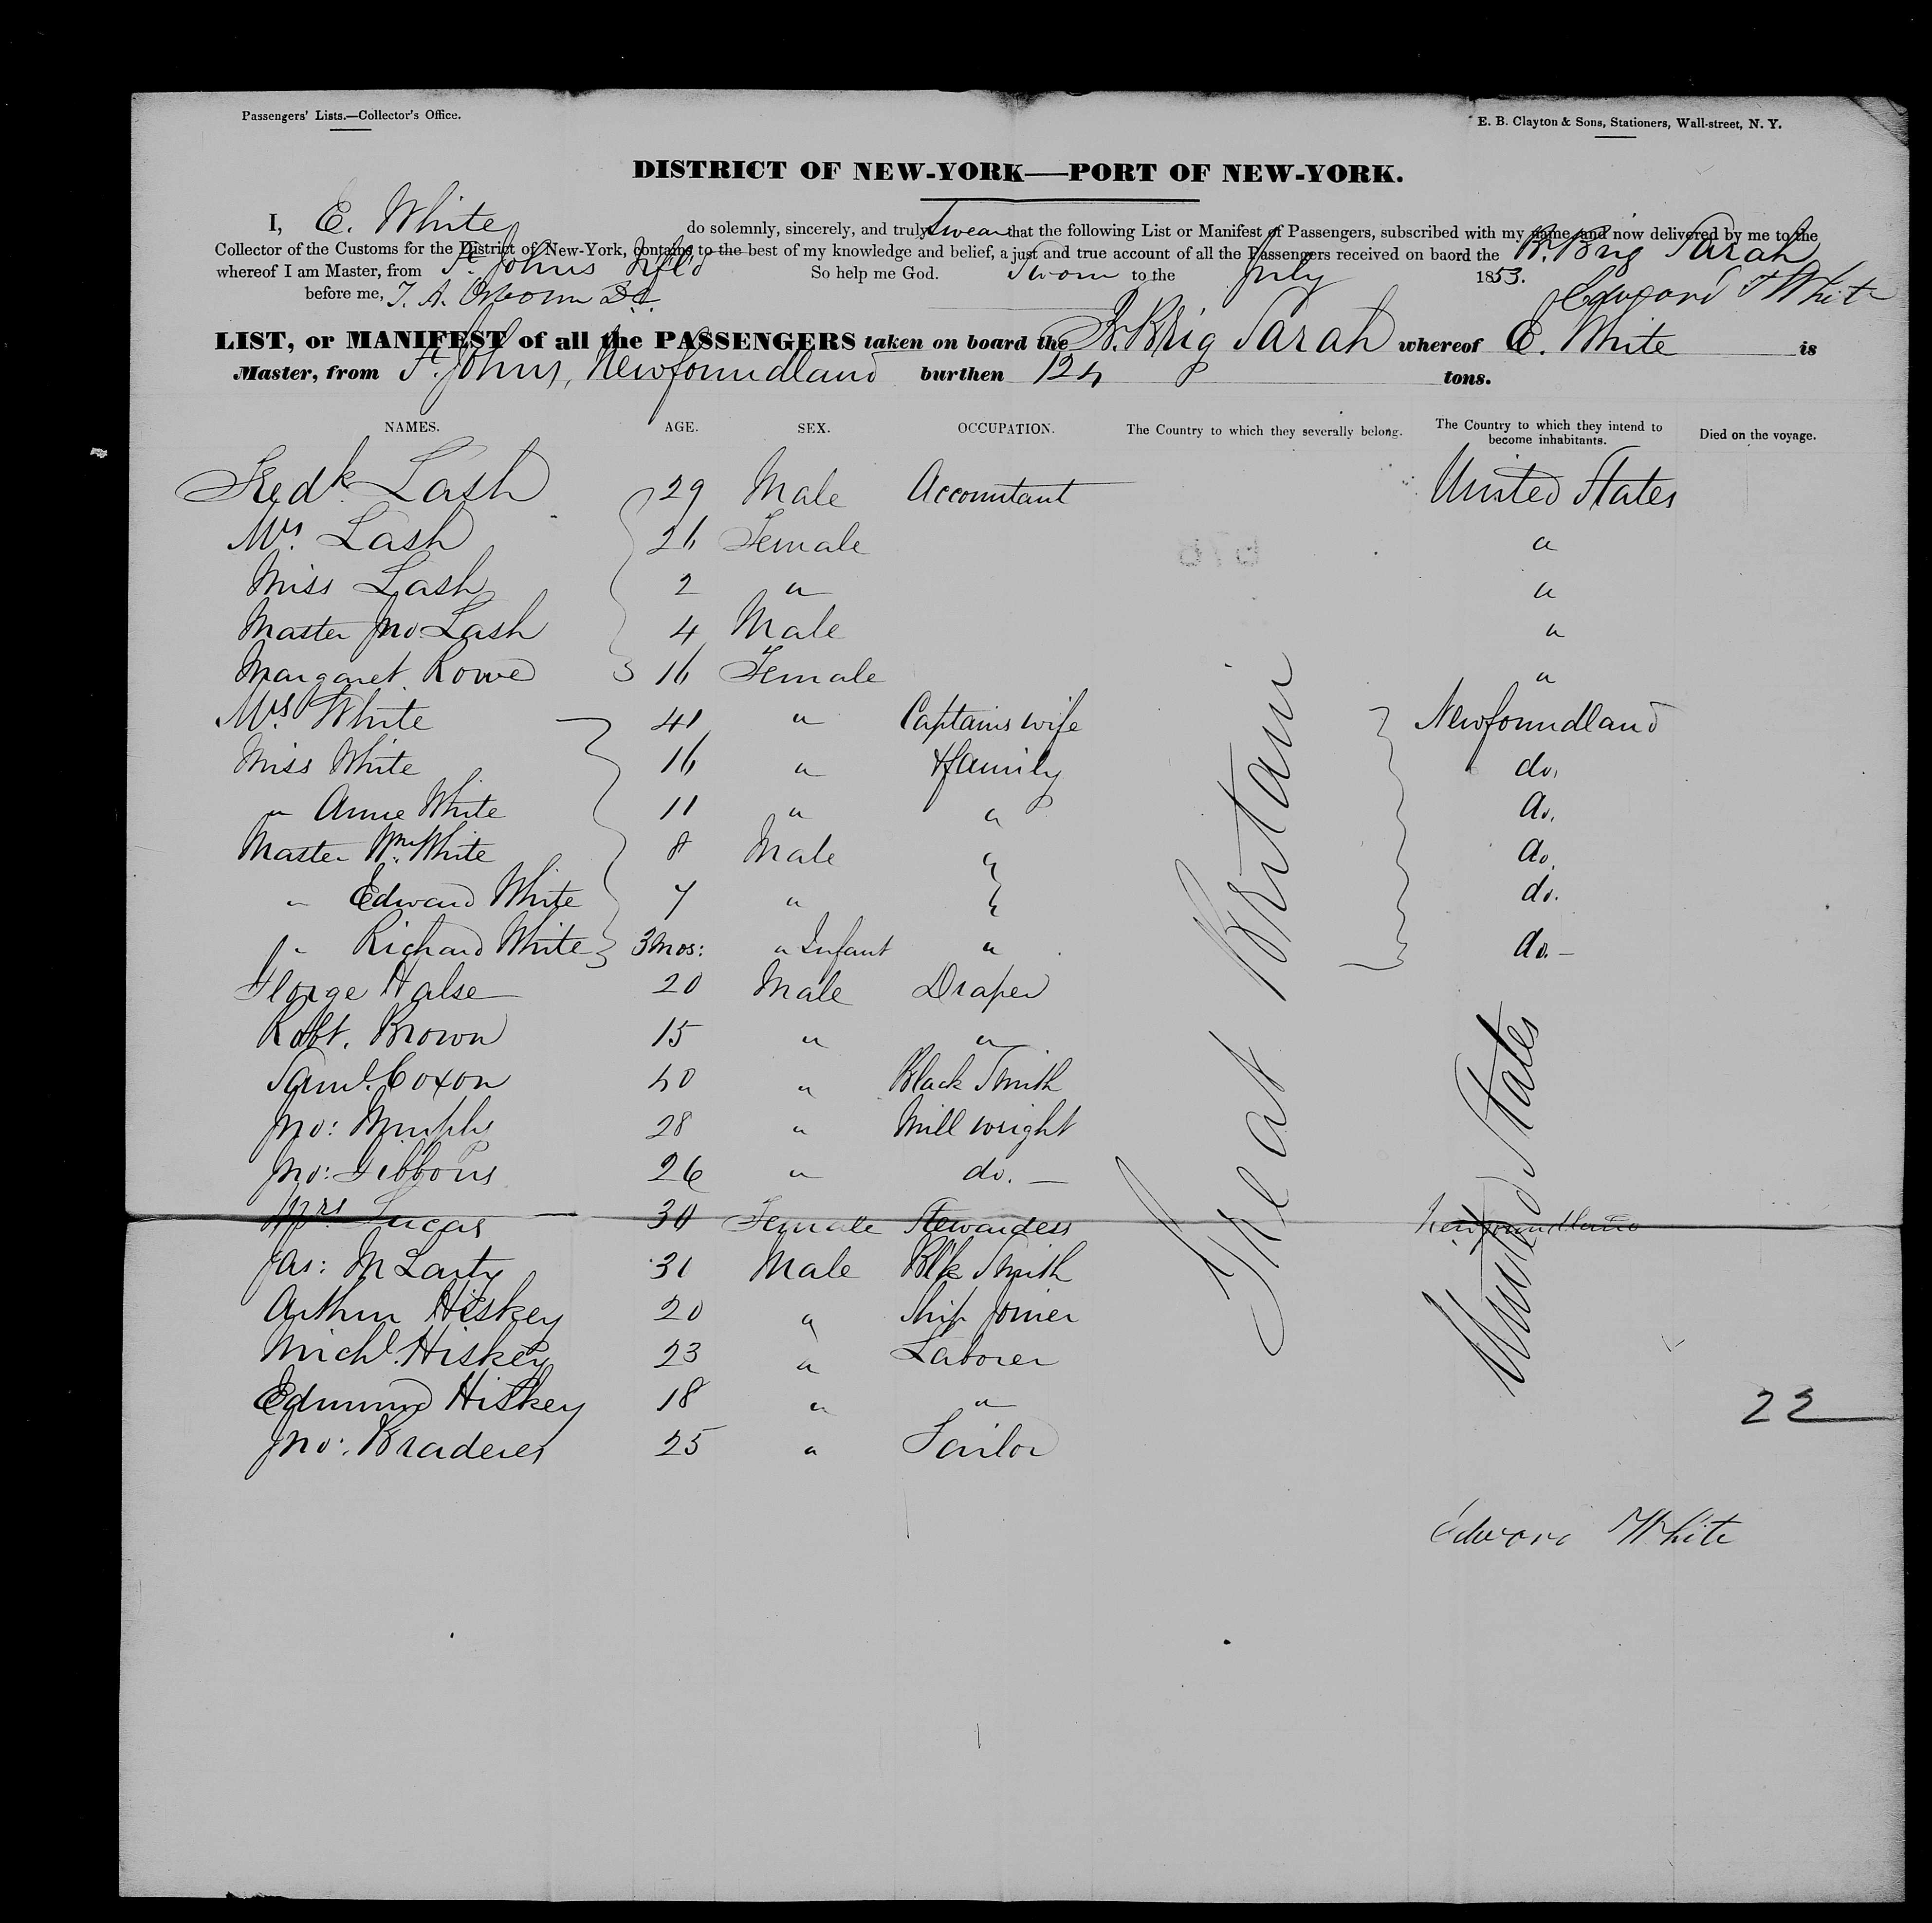 Passengers' Lists.—Collector's Office.
E. B. Clayton & Sons, Stationers, Wall-street, N. Y.
DISTRICT OF NEW-YORK—PORT OF NEW-YORK.
I, E. White do solemnly, sincerely, and truly Swear that the following List or Manifest of Passengers, subscribed with my name, and now delivered by me to the
Collector of the Customs for the District of New-York, contains to the best of my knowledge and belief, a just and true account of all the Passengers received on baord the Br. Brig Sarah
whereof I am Master, from St. Johns Nfld So help me God. Sworn to the July 1853. Edward White
before me,
LIST, or MANIFEST of all the PASSENGERS taken on board the Br. Brig Sarah whereof E. White is
Master, from St. Johns, Newfoundland burthen 124 tons.
NAMES. AGE. SEX. OCCUPATION. The Country to which they severally belong. The Country to which they intend to become inhabitants. Died on the voyage.
Fredk. Lash 29 Male Accountant United States
Mrs. Lash 26 Female "
Miss Lash 2 " "
Master Jno. Lash 4 Male "
Margaret Rowe 16 Female "
Mrs White 41 " Captains wife Newfoundland
Miss White 16 " & family do.
" Annie White 11 " " do.
Master Wm. White 8 Male " do.
" Edward White 7 " " do.
" Richard White 3 mos: " Infant " do. —
George Halse 20 Male Draper
Robt. Brown 15 " "
Saml. Coxon 40 " Black Smith
Jno: Murphy 28 " Mill wright
Jno: Gibbons 26 " do. —
Mrs. Lucas 30 Female Stewardess Newfoundland
Jas: McLarty 31 Male Blk Smith
Arthur Hiskey 20 " Ship Joiner
Michl. Hiskey 23 " Laborer
Edmund Hiskey 18 " "
Jno: 25 "
Great Britain
United States
22
Edward White